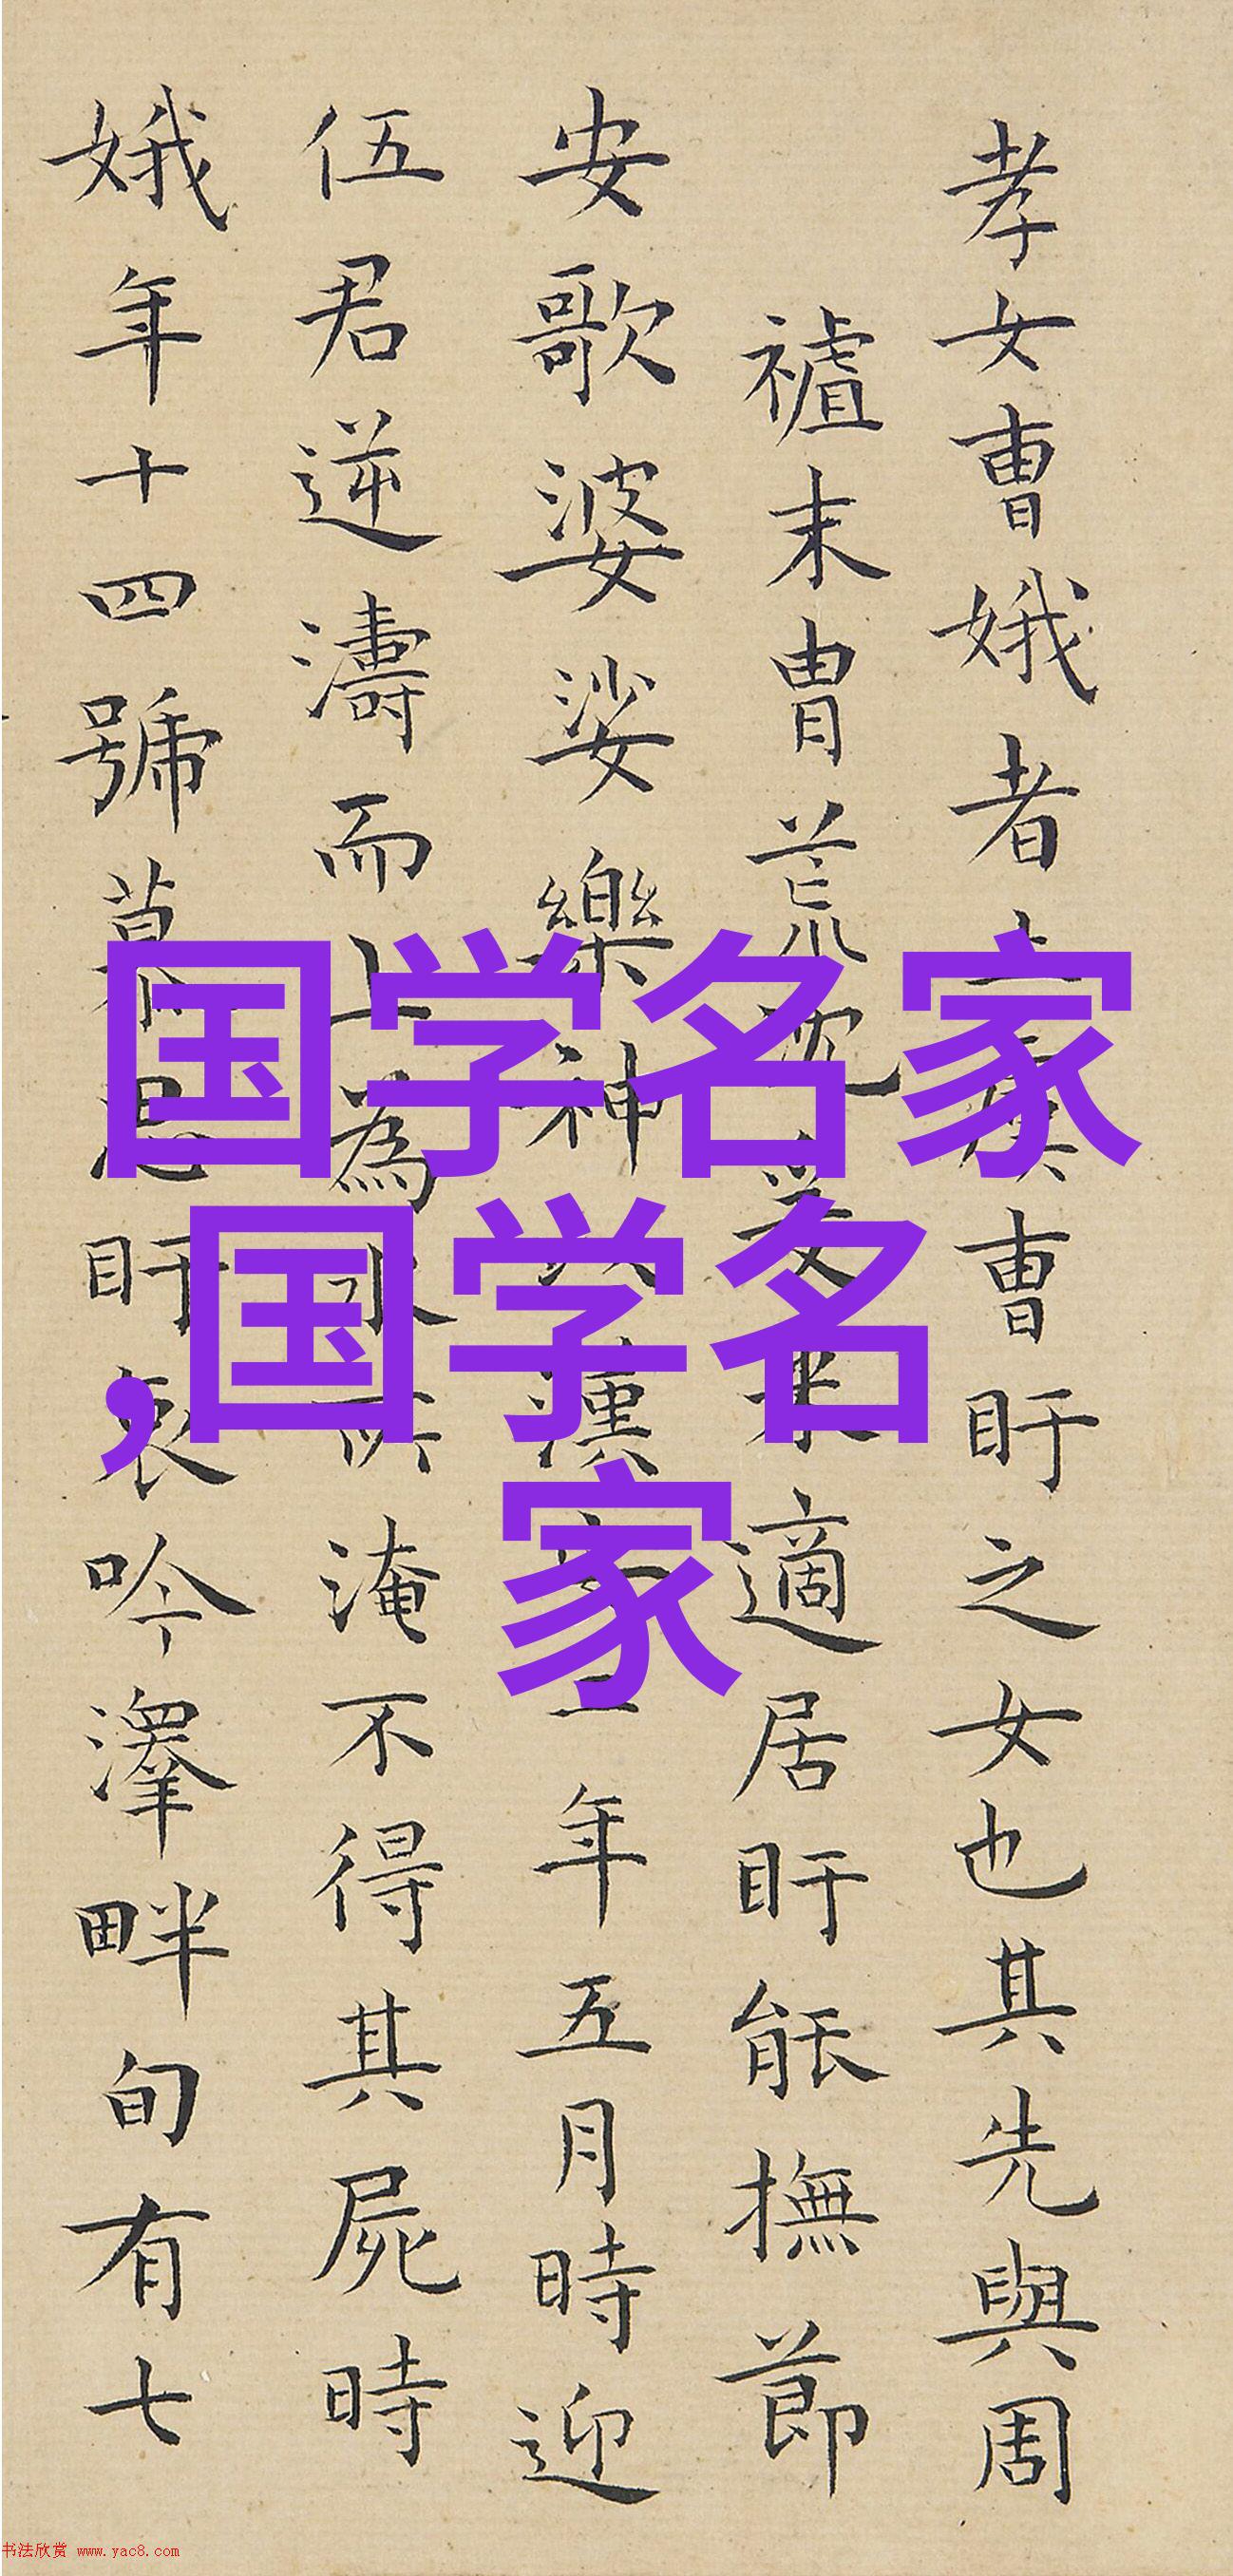 孝女曹娥者上虞曹盱之女也其先與周
襘末胄荒沈爰来適居盱能撫節
安歌婆娑樂神以漢安二年五月時迎
伍君逆濤而上為水所淹不得其屍時
娥年十四號慕思盱哀吟澤畔旬有七
国学名家
,国学名
家
书法欣赏 www.yac8.com